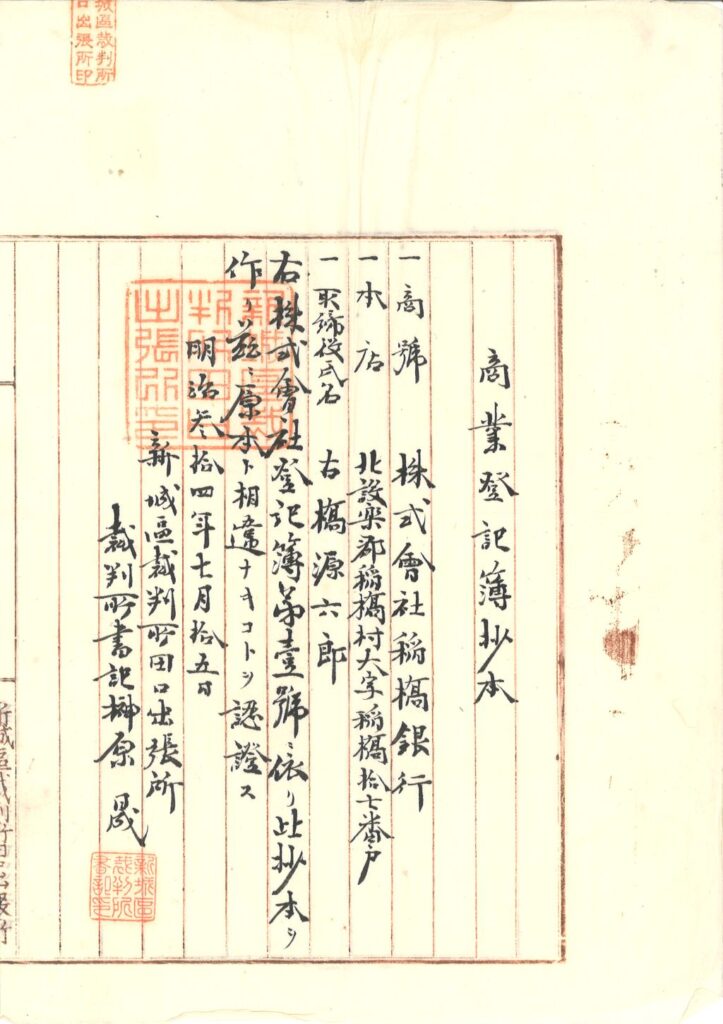 商業登記簿抄本
一商號 株式會社稲橋銀行
一本店 北設楽郡稲橋村大字稲橋拾七番戸
一取締役氏名 古橋源六郎
右株式會社登記簿第壹號ニ依リ此抄本ヲ
作リ茲ニ原本ト相違ナキコトヲ認證ス
明治参拾四年七月拾五日
新城區裁判所田口出張所
裁判所書記榊原晟
新城區裁判所書記印
新城區裁判所田口出張所
城區裁判所
口出張所印
新城區裁判所田口出張所印